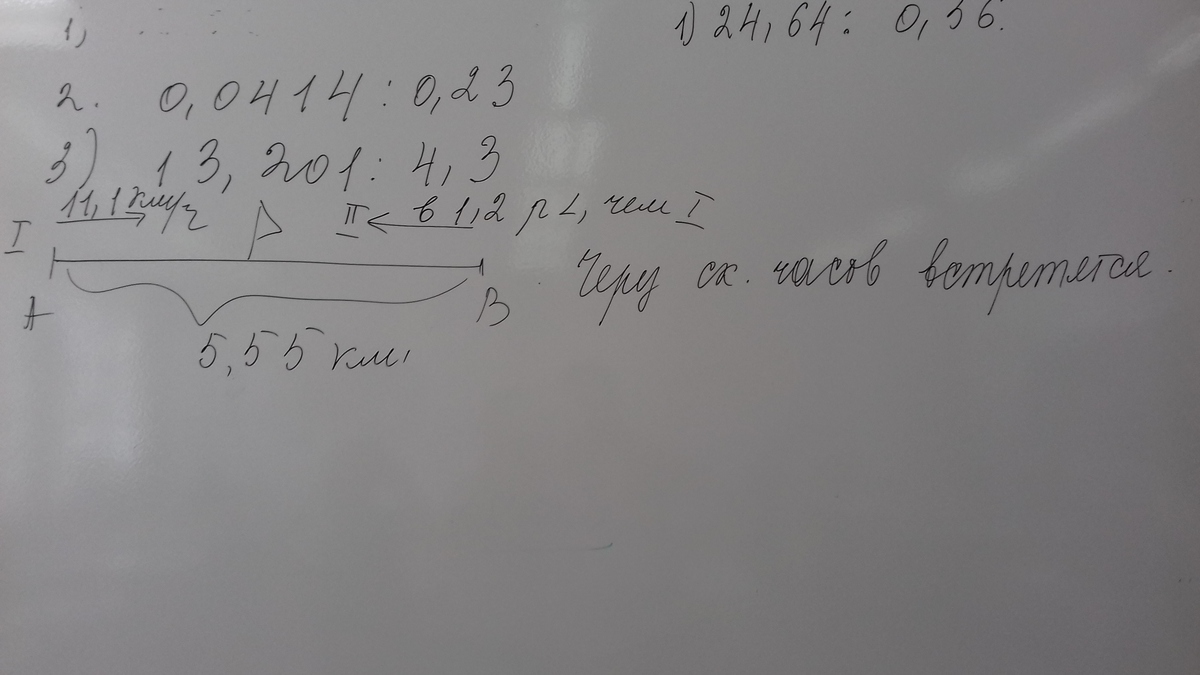 1) 24,64 : 0,56.
1,
2. 0,0414 : 0,23
3) 13,201 : 4,3
11,1 км/ч
I
II
в 1,2 р <, чем I
A
B
Через ск. часов встретятся.
5,55 км